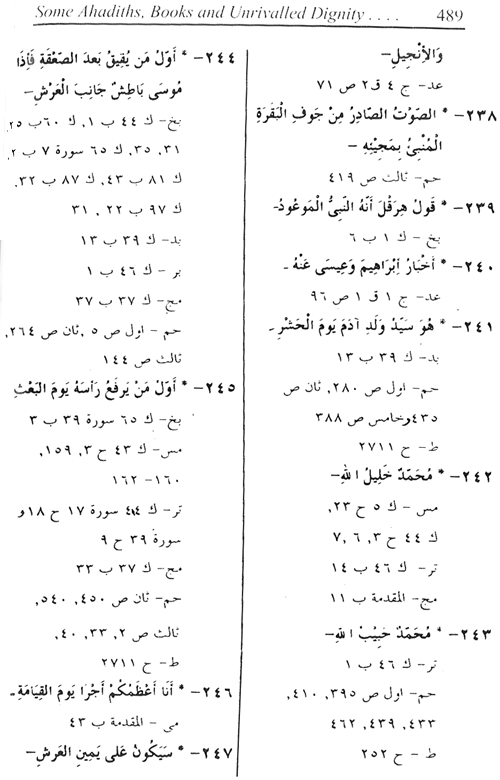 Some Ahadiths, Books and Unrivalled Dignity . . . . 489
وَالْأِنْجِيلِ–
عد– ج ٤ ق ٢ ص ٧١
٢٣٨– * الصَوْتُ الصَادِرُ مِنْ جَوفِ الْبَقَرَةِ
الْمُنْبِئُ بِمَجِيْئِهِ –
حم– ثالث ص ٤١٩
٢٣٩– * قَولُ هِرَقْلَ أَنَّهُ النَبِيُّ الْمَوعُودُ–
بخ – ك ١ ب ٦
٢٤٠– * أَخْبَارُ اِبْرَاهِيمَ وَعِيسَى عَنْهُ –
عد– ج ١ ق ١ ص ٩٦
٢٤١– * هُوَ سَيِّدُ وَلَدِ آدَمَ يَومَ الْحَشْرِ –
بد– ك ٣٩ ب ١٣
حم– اول ص ٢٨٠, ثان ص
٤٣٥, وخامس ص ٣٨٨
ط– ح ٢٧١١
٢٤٢– * مُحَمَّدٌ خَلِيلُ اللهِ–
مس – ك ٥ ح ٢٣,
ك ٤٤ ح ٣, ٦, ٧
تر– ك ٤٦ ب ١٤
مج– المقدمة ب ١١
٢٤٣– * مُحَمَّدٌ حَبِيْبُ اللهِ–
تر– ك ٤٦ ب ١
حم– اول ص ٣٩٥, ٤١٠,
٤٣٣, ٤٣٩, ٤٦٢
ط – ح ٢٥٢
٢٤٤– * أَوَّلُ مَن يُفِيقُ بَعدَ الصَّعْقَةِ فَإِذَا
مُوسَى بَاطِشٌ جَانِبَ الْعَرْشِ–
بخ– ك ٤٤ ب ١, ك ٦٠ ب ٢٥,
٣١, ٣٥, ك ٦٥ سورة ٧ ب ٢,
ك ٨١ ب ٤٣, ك ٨٧ ب ٣٢,
ك ٩٧ ب ٢٢, ٣١
بد– ك ٣٩ ب ١٣
بر – ك ٤٦ ب ١
مج– ك ٣٧ ب ٣٧
حم – اول ص ٥, ثان ص ٢٦٤,
ثالث ص ١٤٤
٢٤٥– * أَوَّلُ مَنْ يَرفَعُ رَأسَهُ يَومَ البَعْثِ
بخ– ك ٦٥ سورة ٣٩ ب ٣
مس– ك ٤٣ ح ٣, ١٥٩,
١٦٠– ١٦٢
تر– ك ٤٤ سورة ١٧ ح ١٨ و
سورة ٣٩ ح ٩
مج– ك ٣٧ ب ٣٣
حم– ثان ص ٤٥٠, ٥٤٠,
ثالث ص ٢, ٣٣, ٤٠,
ط– ح ٢٧١١
٢٤٦– * أَنَا أَعْظَمُكُمْ أَجْرًا يَومَ القِيَامَةِ–
مى – المقدمة ب ٤٣
٢٤٧– * سَيَكُونُ عَلَى يَمِينِ العَرشِ–